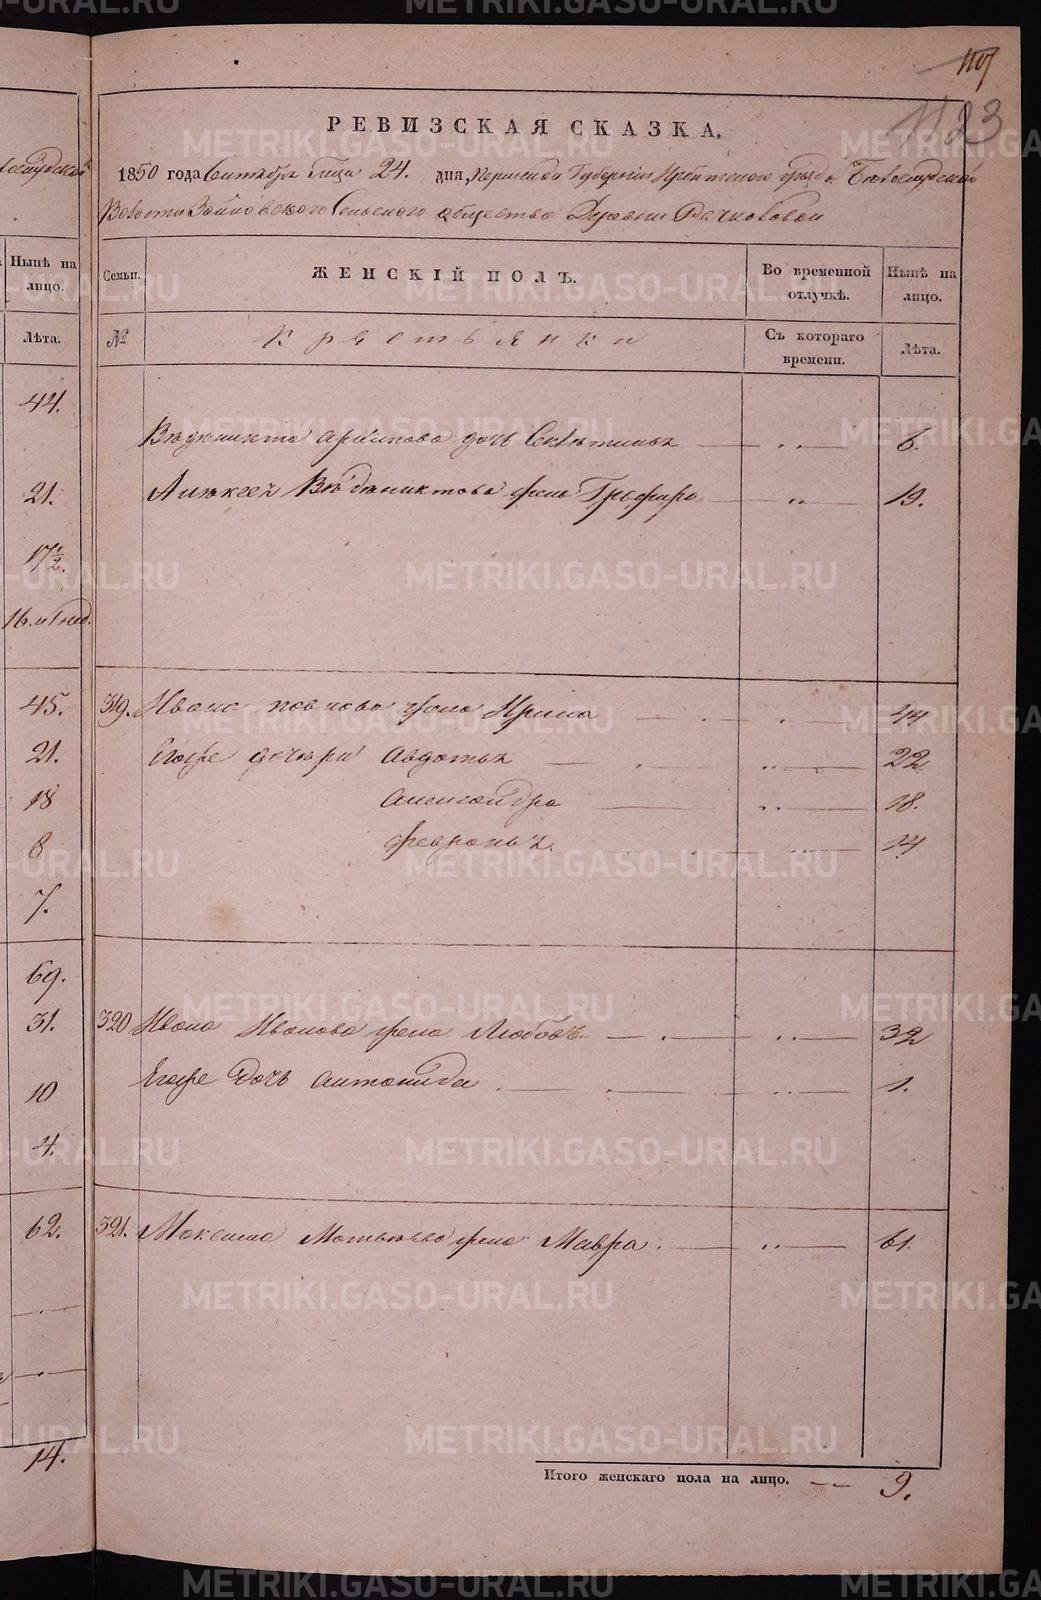 1123
РЕВИЗСКАЯ СКАЗКА.
1850 года Сентября Месяца 24. дня, Пермской Губернии Ирбитского уезда, Белослудской
Волости Зайковского Сельского общества Деревни Рачковой
Нынѣ на лицо.
Лѣта.
44.
21.
17 1/2.
45.
21.
18
8
7.
69.
31.
10
4.
62.
14.
Семьи.
ЖЕНСКІЙ ПОЛЪ.
Во временной отлучкѣ.
Нынѣ на лицо.
№
Крестьянки
Съ котораго времени.
Лѣта.
дочь 6.
Алексея жена Глафира 19.
319. Ивана жена Ирина 44
Егоже дочери Авдотья 22.
Александра 18.
Февронья 14
320 Ивана Иванова жена Любовь 32
Егоже дочь Антонида 1.
321. Максима Матвеева жена Мавра. 61.
Итого женскаго пола на лицо. 9.
METRIKI.GASO-URAL.RU